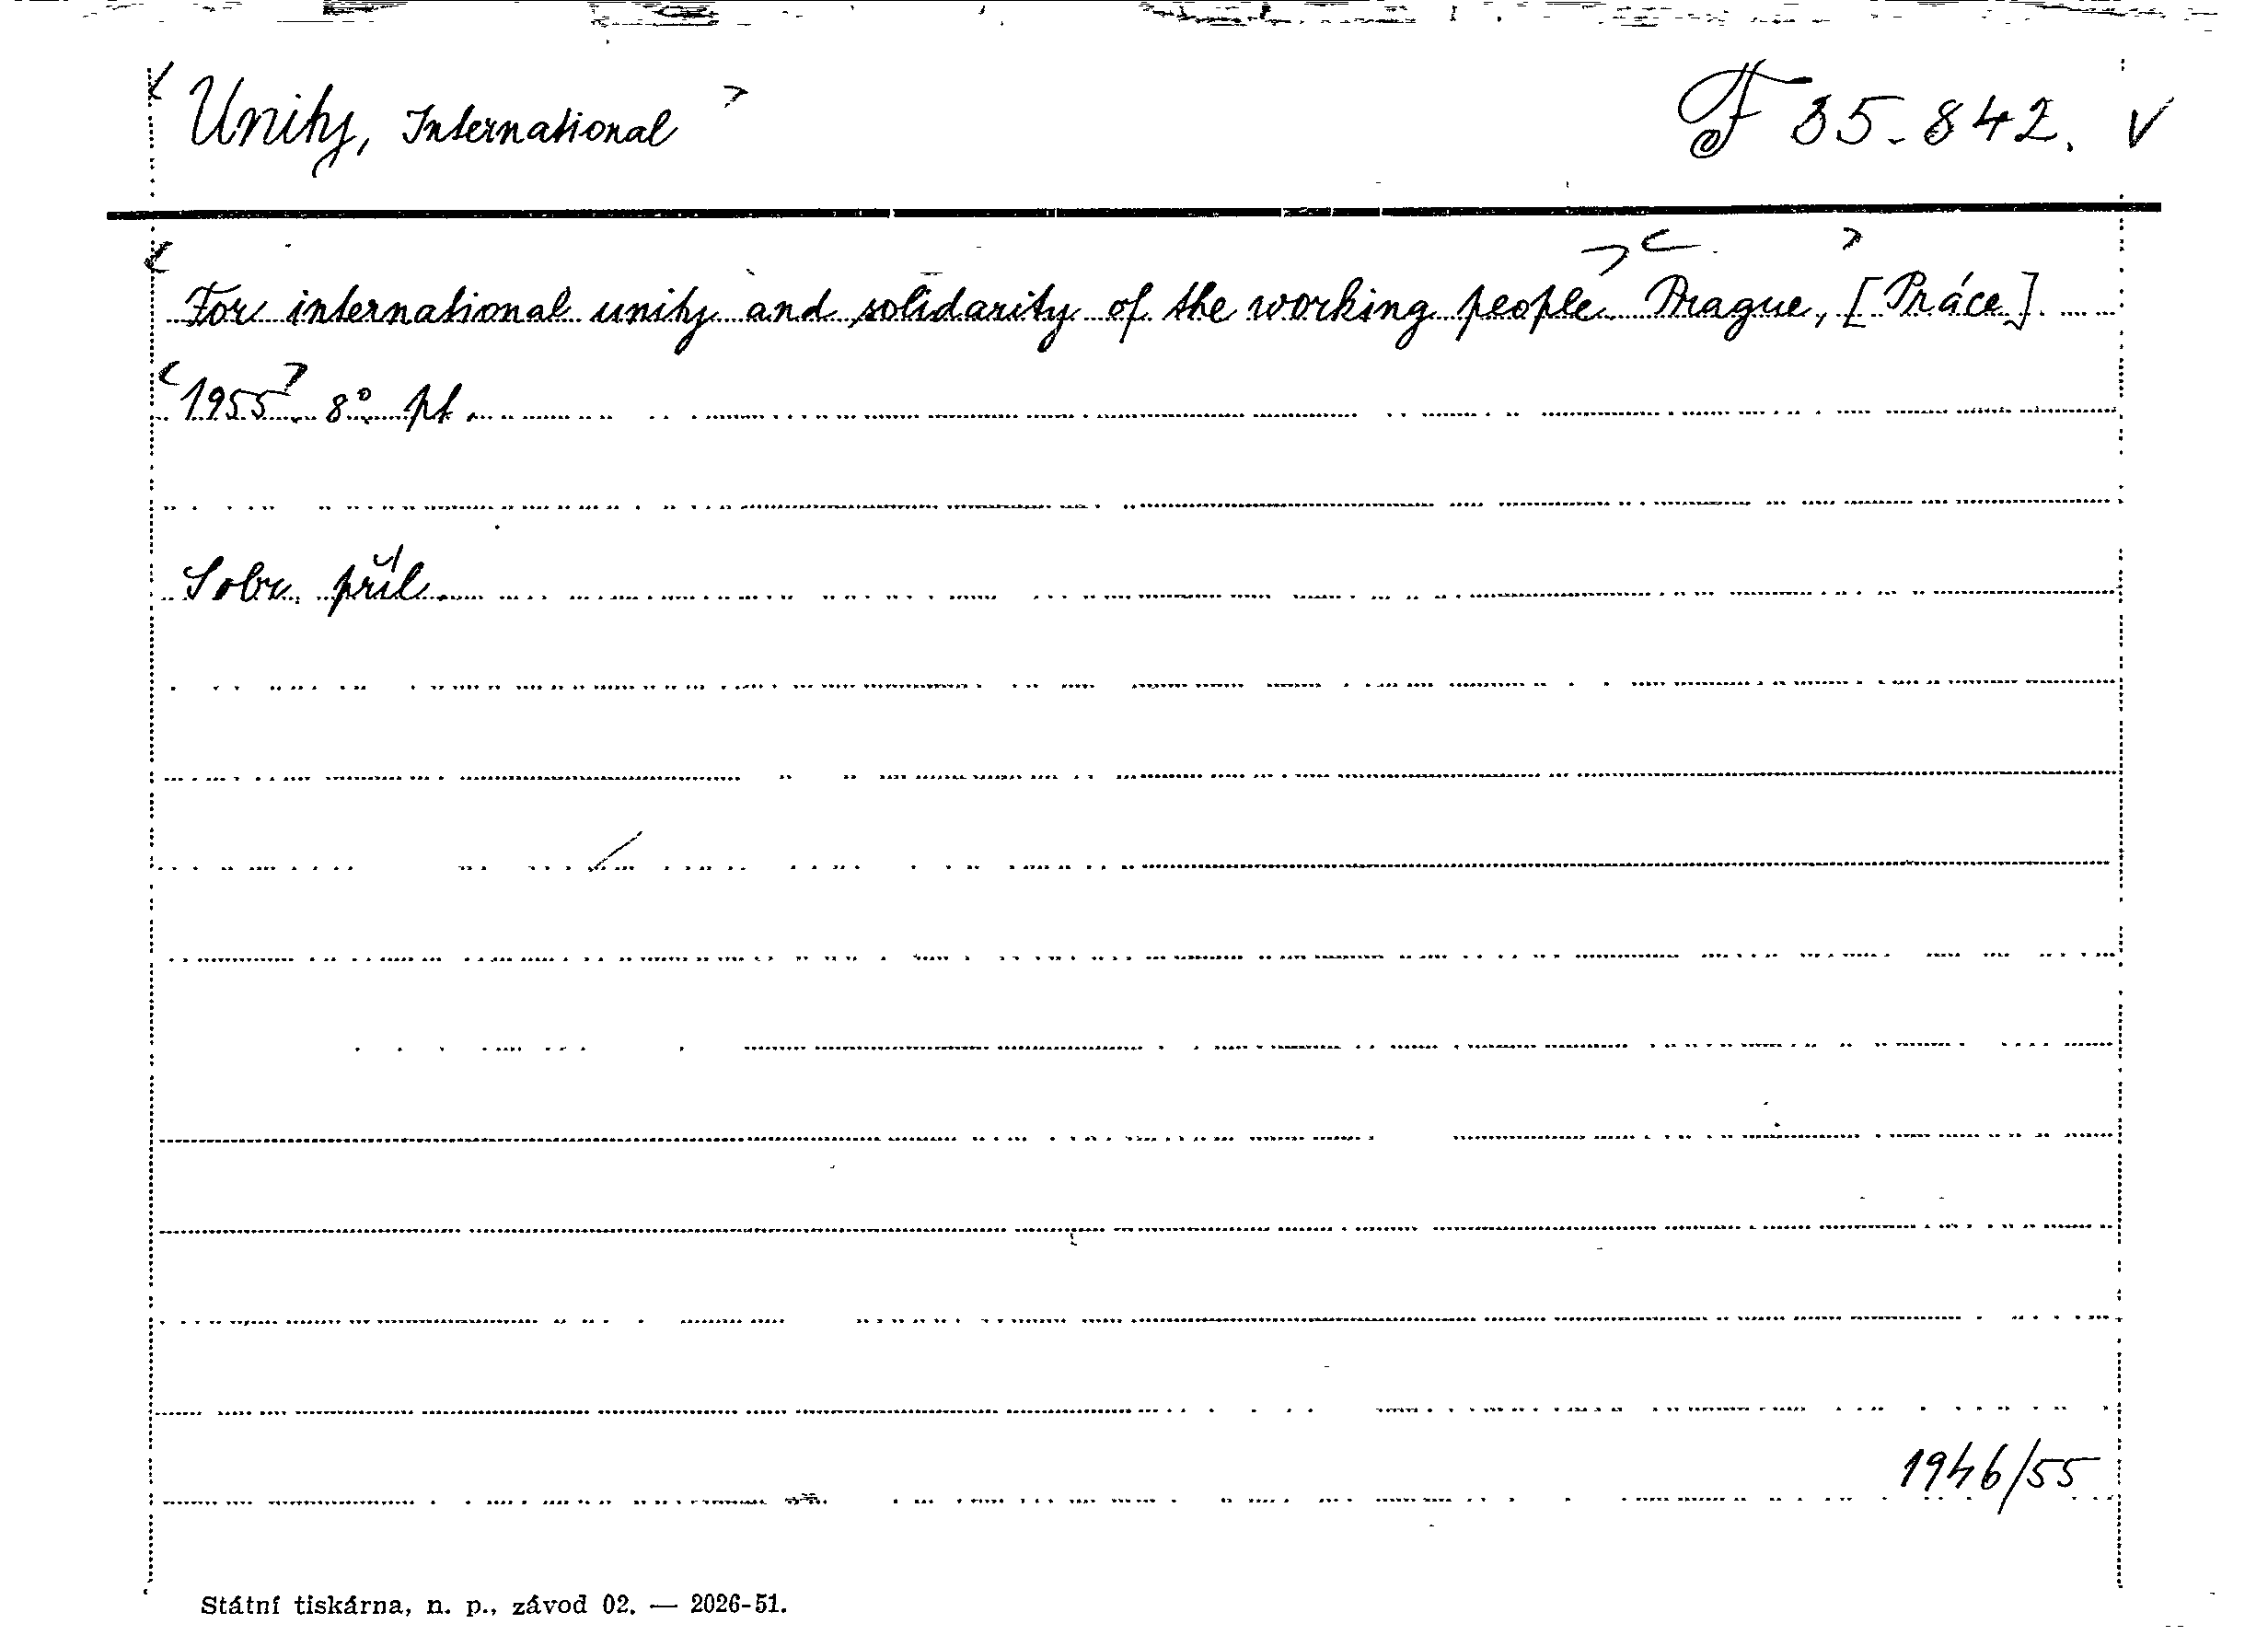 < Unity, International >
F 35-842. V
< For international unity and solidarity of the working people. >< Prague, > [Práce].
< 1955 >. 8° pt.
Sobr. příl.
1946/55
Státní tiskárna, n. p., závod 02. — 2026-51.